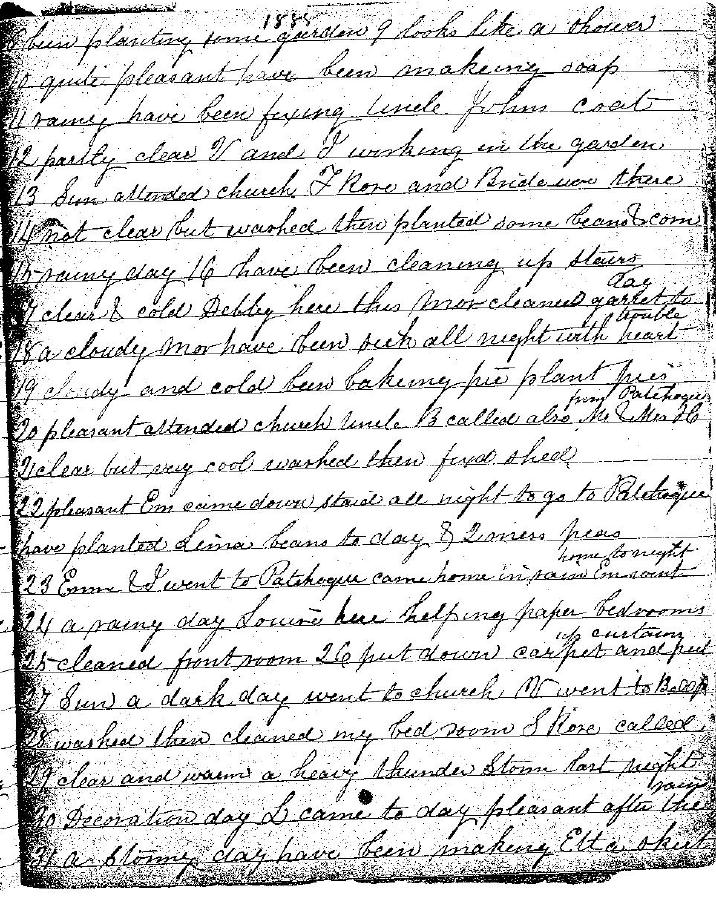 1888
8 been planting some garden 9 looks like a shower
10 quite pleasant have been makeing soap
11 rainy have been fixing Uncle Johns coat
12 partly clear V and I working in the garden
13 Sun attended church F Rose and Bride were there
14 not clear but washed then planted some beans & corn
15 rainy day 16 have been cleaning up stairs
17 clear & cold Debby here this Mor cleaned garret to day
18 a cloudy Mor have been sick all night with heart trouble
19 cloudy and cold been bakeing pie plant pies
20 pleasant attended church Uncle B called also Mr & Mrs H from Patchogue
21 clear but very cool washed then fixd shed
22 pleasant Em came down staid all night to go to Patchogue
have planted Lima beans to day & 2 mess peas
23 Emm & I went to Patchogue came home in rain Em went home to night
24 a rainy day Louise here helping paper bedrooms
25 cleaned front room 26 put down carpet and put up curtains
27 Sun a dark day went to church W went to
28 washed then cleaned my bed room S Rose called
29 clear and warm a heavy thunder Storm last night
30 Decoration day L came to day pleasant after the rain
31 a Stormy day have been making Etta skirt